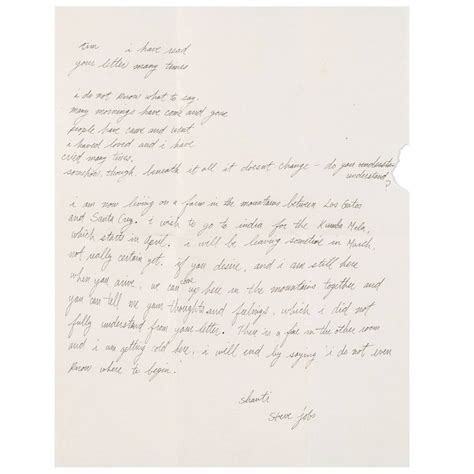 tim i have read
your letter many times
i do not know what to say.
many mornings have come and gone
people have came and went
i haved loved and i have
cried many times.
somehow, though, beneath it all it doesnt change - do you
understand?
i am now living on a farm in the mountains between Los Gatos
and Santa Cruz. i wish to go to india for the Kumba Mela,
which starts in April. i will be leaving sometime in March,
not really certain yet. if you desire, and i am still here
when you arive, we can up here in the mountains together and
you can tell me your thoughts and feelings, which i did not
fully understand from your letter. There is a fire in the other room
and i am getting cold here, i will end by saying i do not even
know where to begin.
shanti
steve jobs